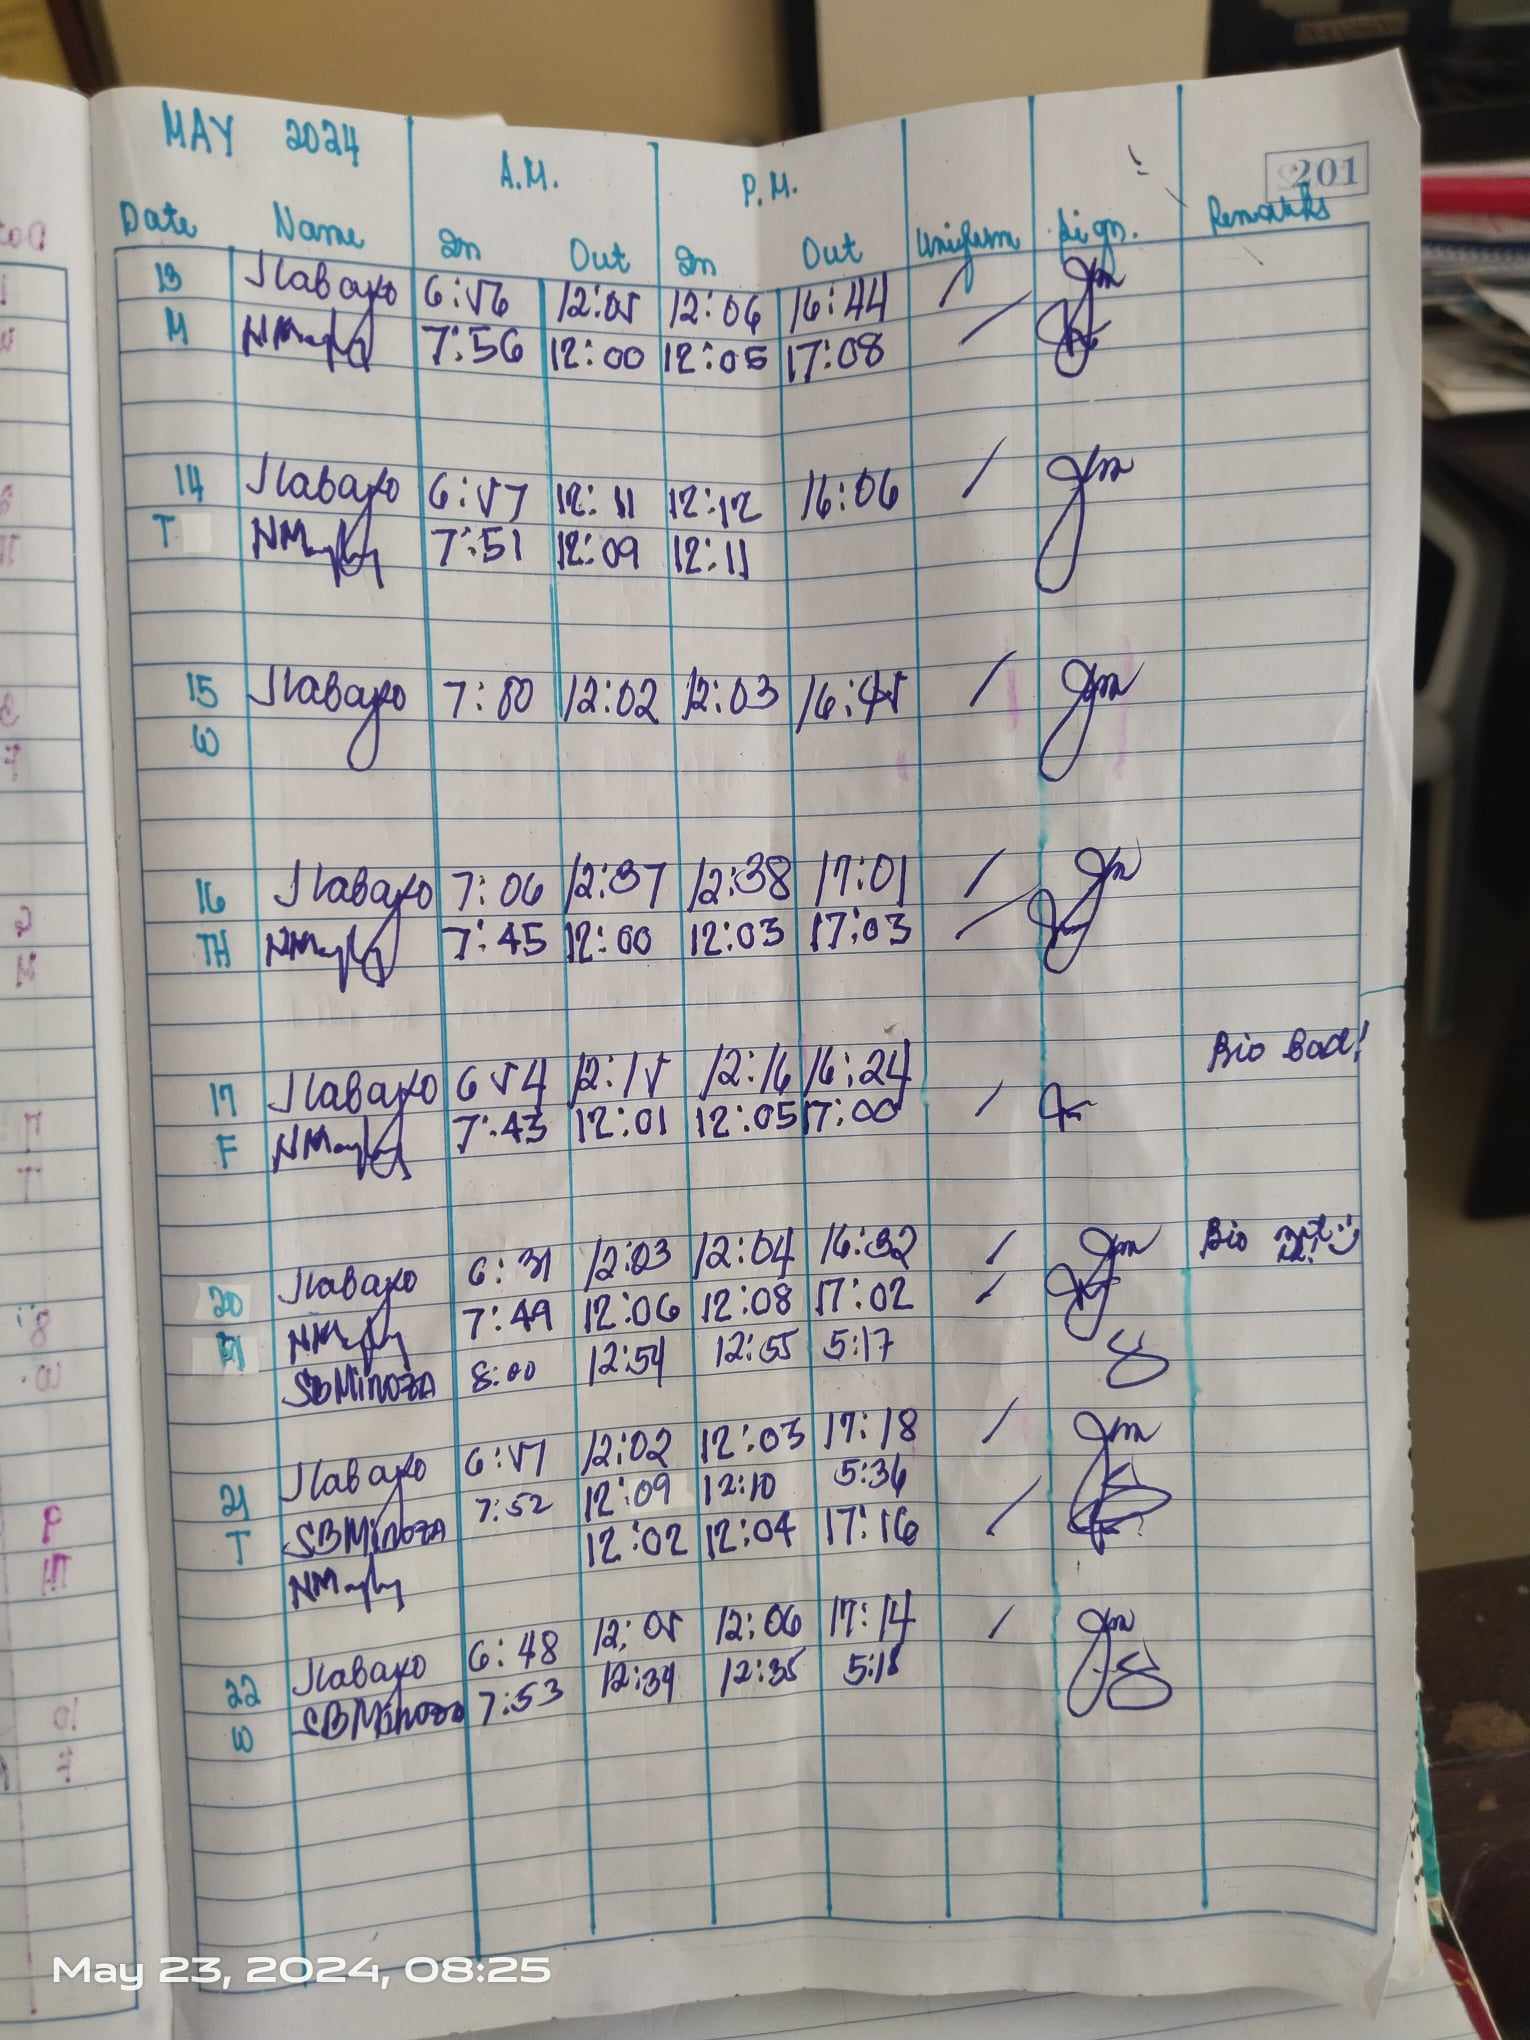 MAY 2024
A.M. P.M. 201
Date Name In Out In Out Uniform Sign. Remarks
13 Jlabayo 6:56 12:05 12:06 16:44
M 7:56 12:00 12:05 17:08
14 Jlabayo 6:57 12:11 12:12 16:06
T 7:51 12:09 12:11
15 Jlabayo 7:00 12:02 12:03 16:45
W
16 Jlabayo 7:06 12:37 12:38 17:01
TH 7:45 12:00 12:03 17:03
Bio bad!
17 Jlabayo 6 54 12:15 12:16 16:24
F 7:43 12:01 12:05 17:00
20 Jlabayo 6:31 12:03 12:04 16:32 Bio
7:49 12:06 12:08 17:02
SBMinoza 8:00 12:54 12:55 5:17
21 Jlabayo 6:57 12:02 12:03 17:18
T SBMinoza 7:52 12:09 12:10 5:36
12:02 12:04 17:16
22 Jlabayo 6:48 12:05 12:06 17:14
W SBMinoza 7:53 12:34 12:35 5:18
May 23, 2024, 08:25